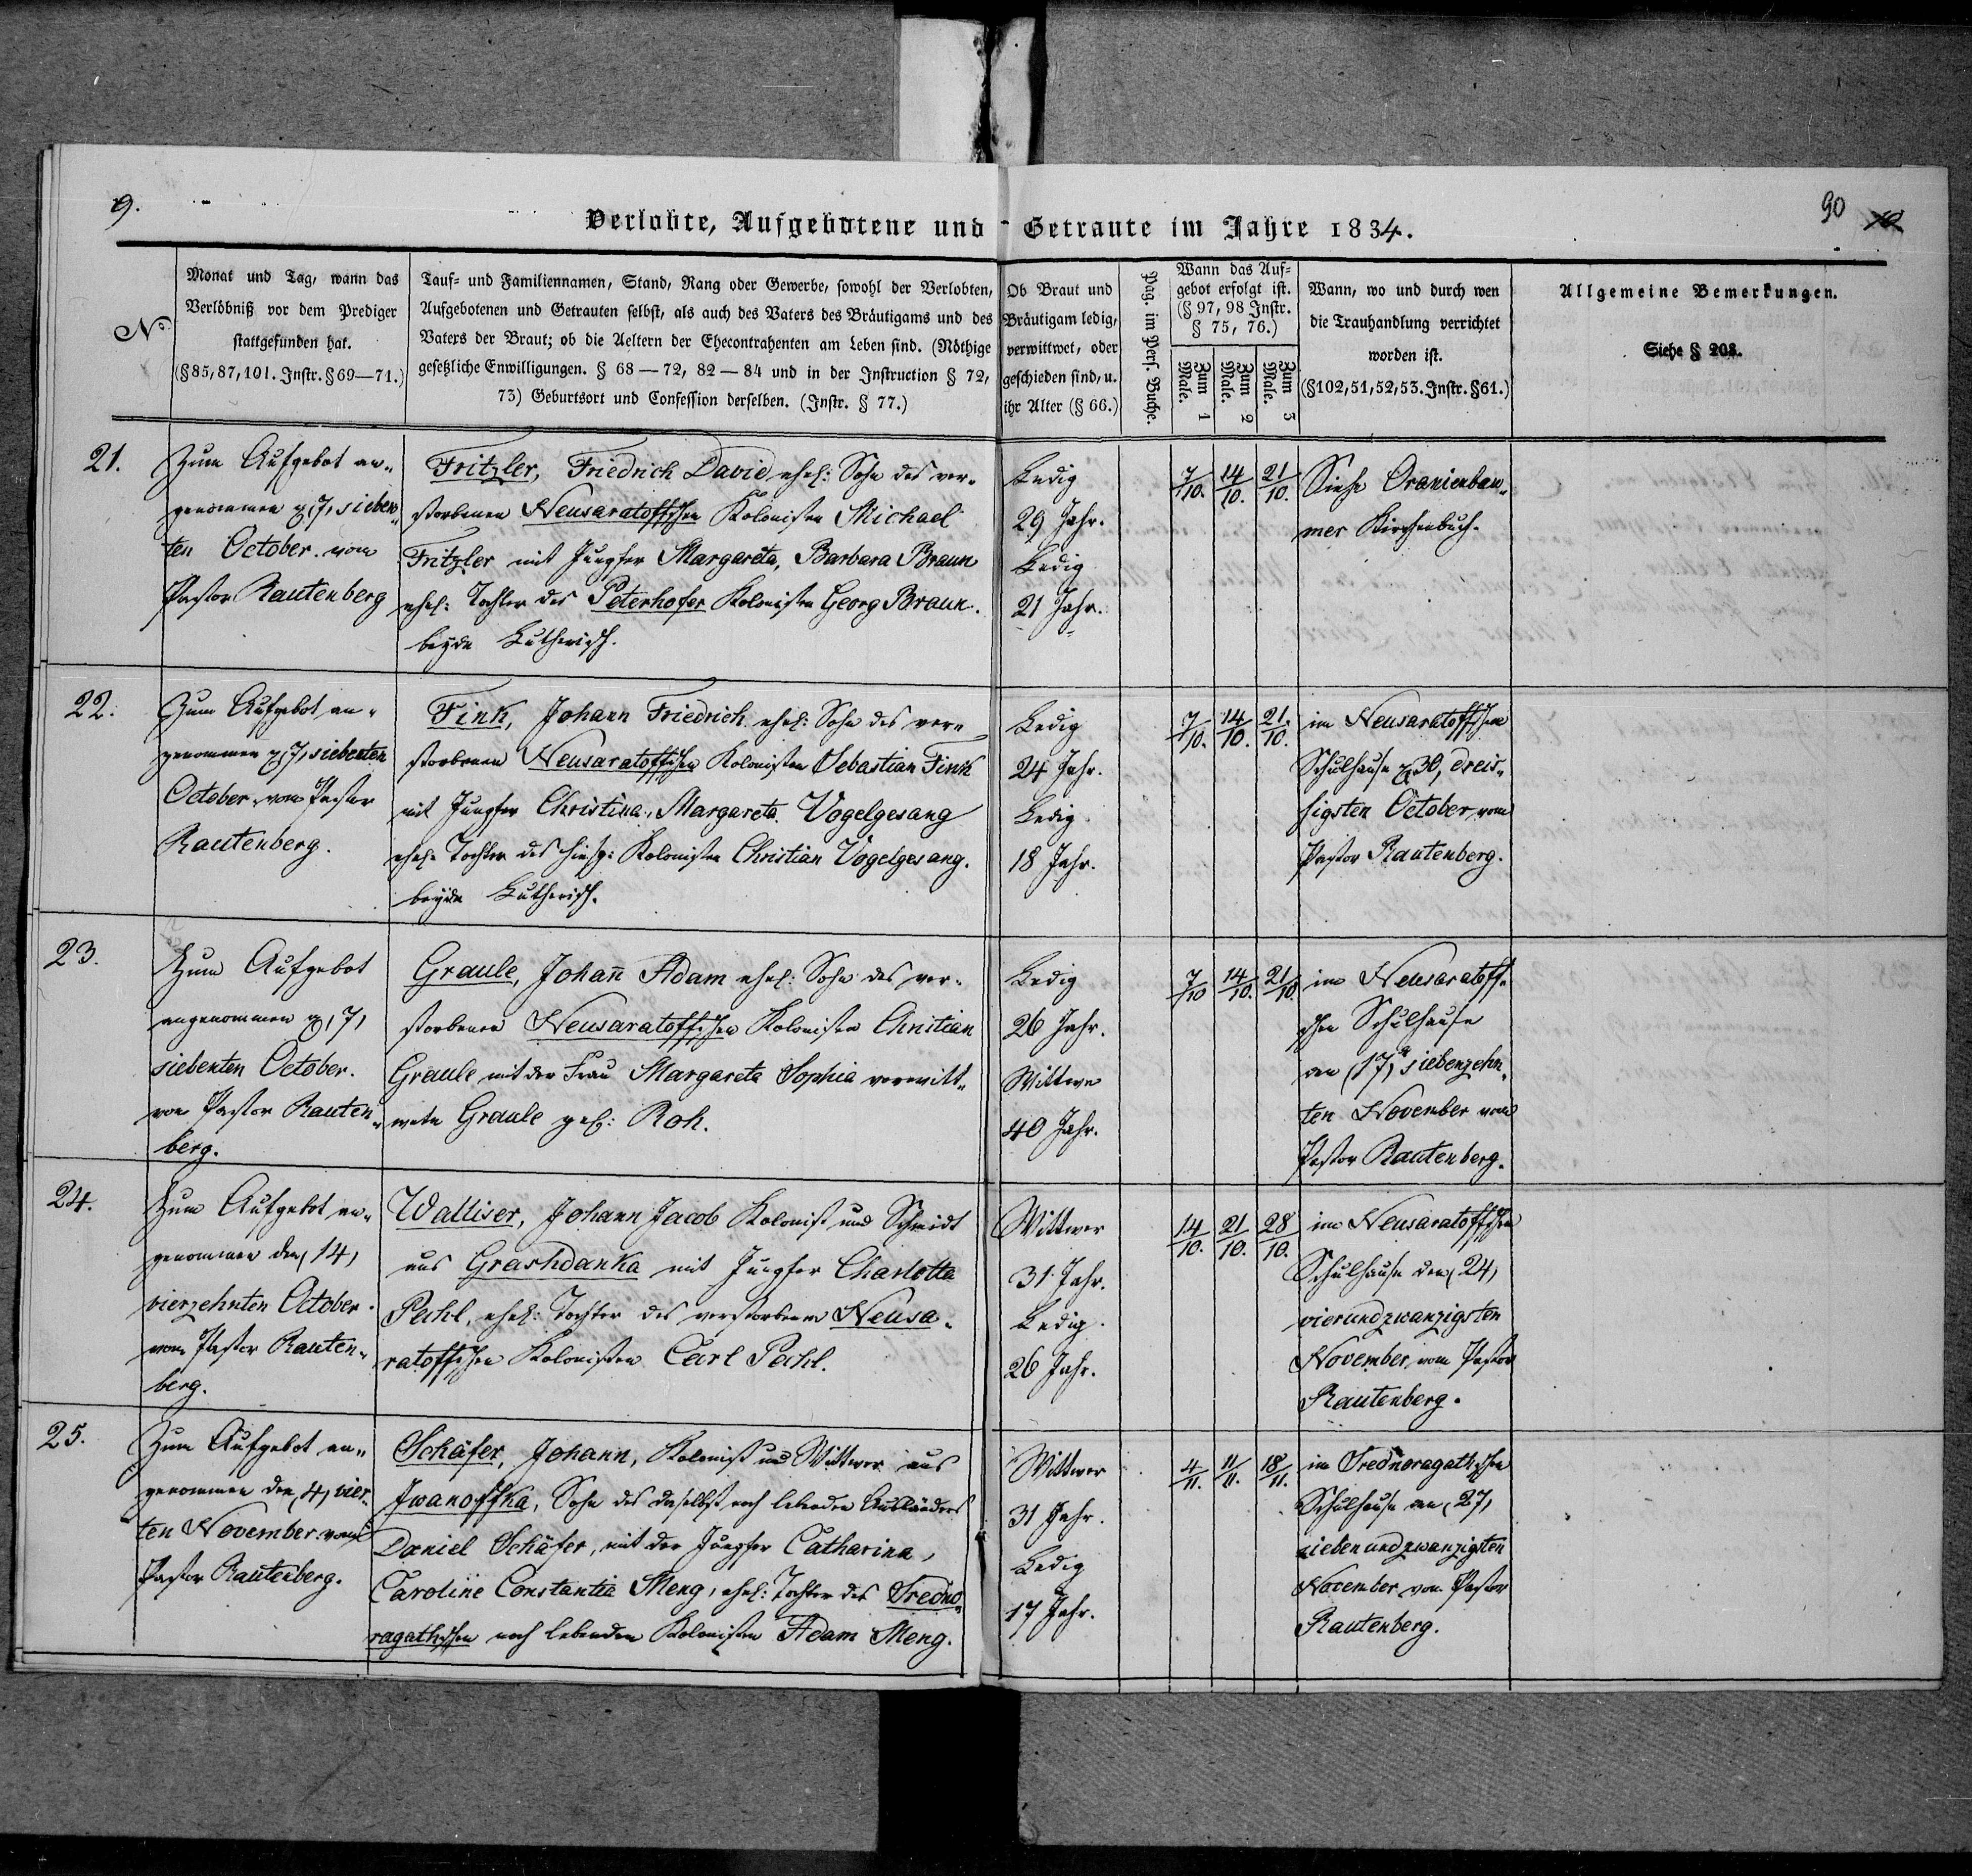 9.
90
10
Verlobte, Aufgebotene und Getraute im Jahre 1834.
No.
Monat und Tag, wann das
Verlöbniß vor dem Prediger
stattgefunden hat.
(§85,87,101. Instr. §69—71.)
Tauf- und Familiennamen, Stand, Rang oder Gewerbe, sowohl der Verlobten,
Aufgebotenen und Getrauten selbst, als auch des Vaters des Bräutigams und des
Vaters der Braut; ob die Aeltern der Ehecontrahenten am Leben sind. (Nöthige
gesetzliche Enwilligungen. § 68—72, 82—84 und in der Instruction § 72,
73) Geburtsort und Confession derselben. (Instr. § 77.)
Ob Braut und
Bräutigam ledig,
verwittwet, oder
geschieden sind, u.
ihr Alter (§ 66.)
Pag. im Pers. Buche.
Wann das Auf-
gebot erfolgt ist.
(§ 97, 98 Instr.
§ 75, 76.)
Zum 1
Male.
Zum 2
Male.
Zum 3
Male.
Wann, wo und durch wen
die Trauhandlung verrichtet
worden ist.
(§102,51,52,53. Instr. §61.)
Allgemeine Bemerkungen.
Siehe § 208.
21.
Zum Aufgebot an-
genommen 7, sieben-
ten October. vom
Pastor Rautenberg
Fritzler, Friedrich David ehel: Sohn des ver-
storbenen Neusaratoffschen Kolonisten Michael
Fritzler mit Jungfer Margareta, Barbara Braun
ehel: Tochter des Peterhofer Kolonisten Georg Braun.
beyde Lutherisch.
Ledig
29 Jahr.
Ledig
21 Jahr.
7/10. 14/10. 21/10.
Siehe Oranienbau-
mer Kirchenbuch.
22.
Zum Aufgebot an-
genommen 7, siebenten
October. vom Pastor
Rautenberg.
Fink, Johann Friedrich ehel: Sohn des ver-
storbenen Neusaratoffschen Kolonisten Sebastian Fink
mit Jungfer Christina, Margareta Vogelgesang
ehel: Tochter des hies: Kolonisten Christian Vogelgesang.
beyde Lutherisch.
Ledig
24 Jahr.
Ledig
18 Jahr.
7/10. 14/10. 21/10.
im Neusaratoffschen
Schulhause 30, dreis-
sigsten October, vom
Pastor Rautenberg.
23.
Zum Aufgebot
angenommen 7,
siebenten October.
vom Pastor Rauten-
berg.
Graule, Johan̄ Adam ehel: Sohn des ver-
storbenen Neusaratoffschen Kolonisten Christian
Graule mit der Frau Margareta Sophia verwitt-
wete Graule geb: Roh.
Ledig
26 Jahr.
Wittwe
40 Jahr.
7/10 14/10. 21/10.
im Neusaratoff-
schen Schulhause
den 17, siebenzehn-
ten November vom
Pastor Rautenberg.
24.
Zum Aufgebot an-
genommen den 14,
vierzehnten October
vom Pastor Rauten-
berg.
Walliser, Johann Jacob Kolonist und Schmidt
aus Grashdanka mit Jungfer Charlotta
Pahl, ehel: Tochter des verstorbenen Neusa-
ratoffschen Kolonisten Carl Pahl.
Wittwer
31 Jahr.
Ledig.
26 Jahr.
14/10. 21/10. 28/10.
im Neusaratoffschen
Schulhause den 24,
vierundzwanzigsten
November, vom Pastor
Rautenberg.
25.
Zum Aufgebot an-
genommen den 4, vier-
ten November. vom
Pastor Rautenberg.
Schäfer, Johann, Kolonist und Wittwer aus
Iwanoffka, Sohn des daselbst noch lebenden Ausländers
Daniel Schäfer, mit der Jungfer Catharina,
Caroline Constantia Meng, ehel: Tochter des Sredno-
ragathschen noch lebenden Kolonisten Adam Meng.
Wittwer
31 Jahr.
Ledig
17 Jahr.
4/11. 11/11. 18/11.
im Srednoragathschen
Schulhause den 27,
siebenundzwanzigsten
November vom Pastor
Rautenberg.